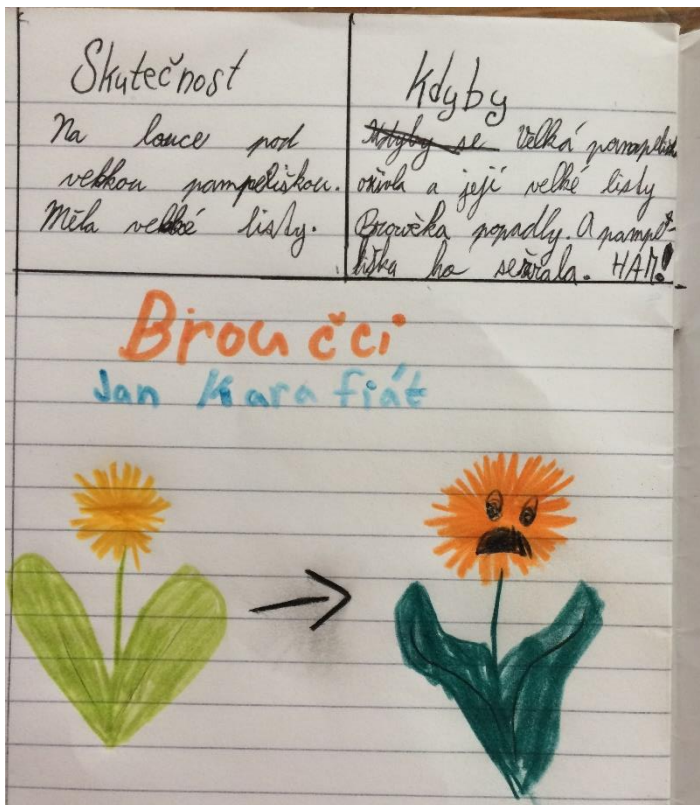 Skutečnost
Na louce pod
velkou pampeliškou.
Měla velké listy.
Kdyby
Kdyby se Velká pampeliška
ožila a její velké listy
Broučka popadly. A pampe-
liška ho sežrala. HAM!
Broučci
Jan Karafiát